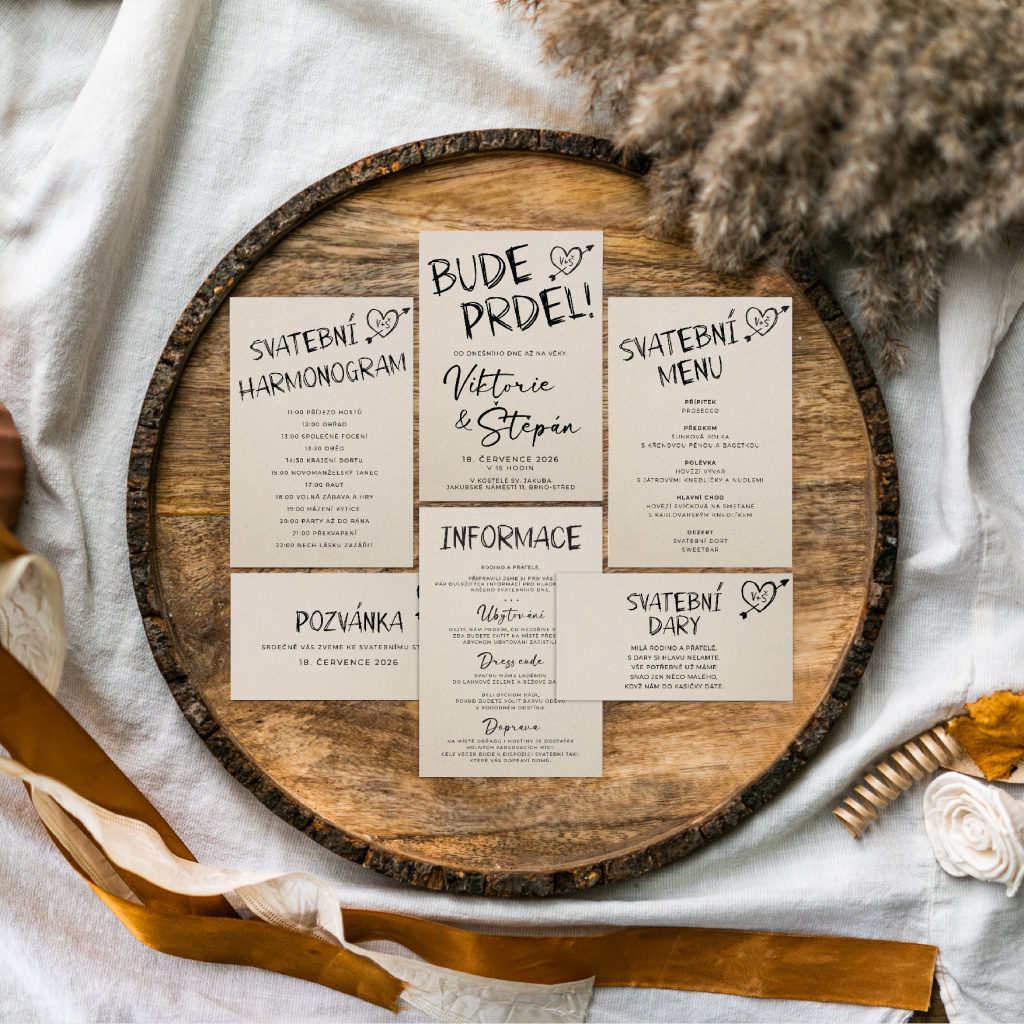 BUDE
PRDEL!
V+Š
OD DNEŠNÍHO DNE AŽ NA VĚKY.
Viktorie
& Štěpán
18. ČERVENCE 2026
V 15 HODIN
V KOSTELE SV. JAKUBA
JAKUBSKÉ NÁMĚSTÍ 11, BRNO-STŘED
SVATEBNÍ
HARMONOGRAM
V+Š
11:00 PŘÍJEZD HOSTŮ
12:00 OBŘAD
13:00 SPOLEČNÉ FOCENÍ
13:30 OBĚD
14:30 KRÁJENÍ DORTU
15:00 NOVOMANŽELSKÝ TANEC
17:00 RAUT
18:00 VOLNÁ ZÁBAVA A HRY
19:00 HÁZENÍ KYTICE
20:00 PÁRTY AŽ DO RÁNA
21:00 PŘEKVAPENÍ
22:00 NECH LÁSKU ZAZÁŘIT
SVATEBNÍ
MENU
V+Š
PŘÍPITEK
PROSECCO
PŘEDKRM
ŠUNKOVÁ ROLKA
S KŘENOVOU PĚNOU A BAGETKOU
POLÉVKA
HOVĚZÍ VÝVAR
S JÁTROVÝMI KNEDLÍČKY A NUDLEMI
HLAVNÍ CHOD
HOVĚZÍ SVÍČKOVÁ NA SMETANĚ
S KARLOVARSKÝM KNEDLÍKEM
DEZERT
SVATEBNÍ DORT
SWEETBAR
POZVÁNKA
SRDEČNĚ VÁS ZVEME KE SVATEBNÍMU ST
18. ČERVENCE 2026
INFORMACE
RODINO A PŘÁTELÉ,
PŘIPRAVILI JSME SI PRO VÁS
PÁR DŮLEŽITÝCH INFORMACÍ PRO HLAD
NAŠEHO SVATEBNÍHO DNE.
Ubytování
DEJTE NÁM PROSÍM, CO NEJDŘÍVE V
ZDA BUDETE CHTÍT NA MÍSTĚ PŘES
ABYCHOM UBYTOVÁNÍ ZAJISTILI
Dress code
SVATBU MÁME LADĚNOU
DO LAHVOVĚ ZELENÉ A BÉŽOVÉ BA
BYLI BYCHOM RÁDI,
POKUD BUDETE VOLIT BARVU ODĚVU
V PODOBNÉM ODSTÍNU.
Doprava
NA MÍSTĚ OBŘADU I HOSTINY JE DOSTATEK
VOLNÝCH PARKOVACÍCH MÍST.
CELÝ VEČER BUDE K DISPOZICI SVATEBNÍ TAXI,
KTERÉ VÁS DOPRAVÍ DOMŮ.
SVATEBNÍ
DARY
V+Š
MILÁ RODINO A PŘÁTELÉ,
S DARY SI HLAVU NELAMTE.
VŠE POTŘEBNÉ UŽ MÁME
SNAD JEN NĚCO MALÉHO,
KDYŽ NÁM DO KASIČKY DÁTE.